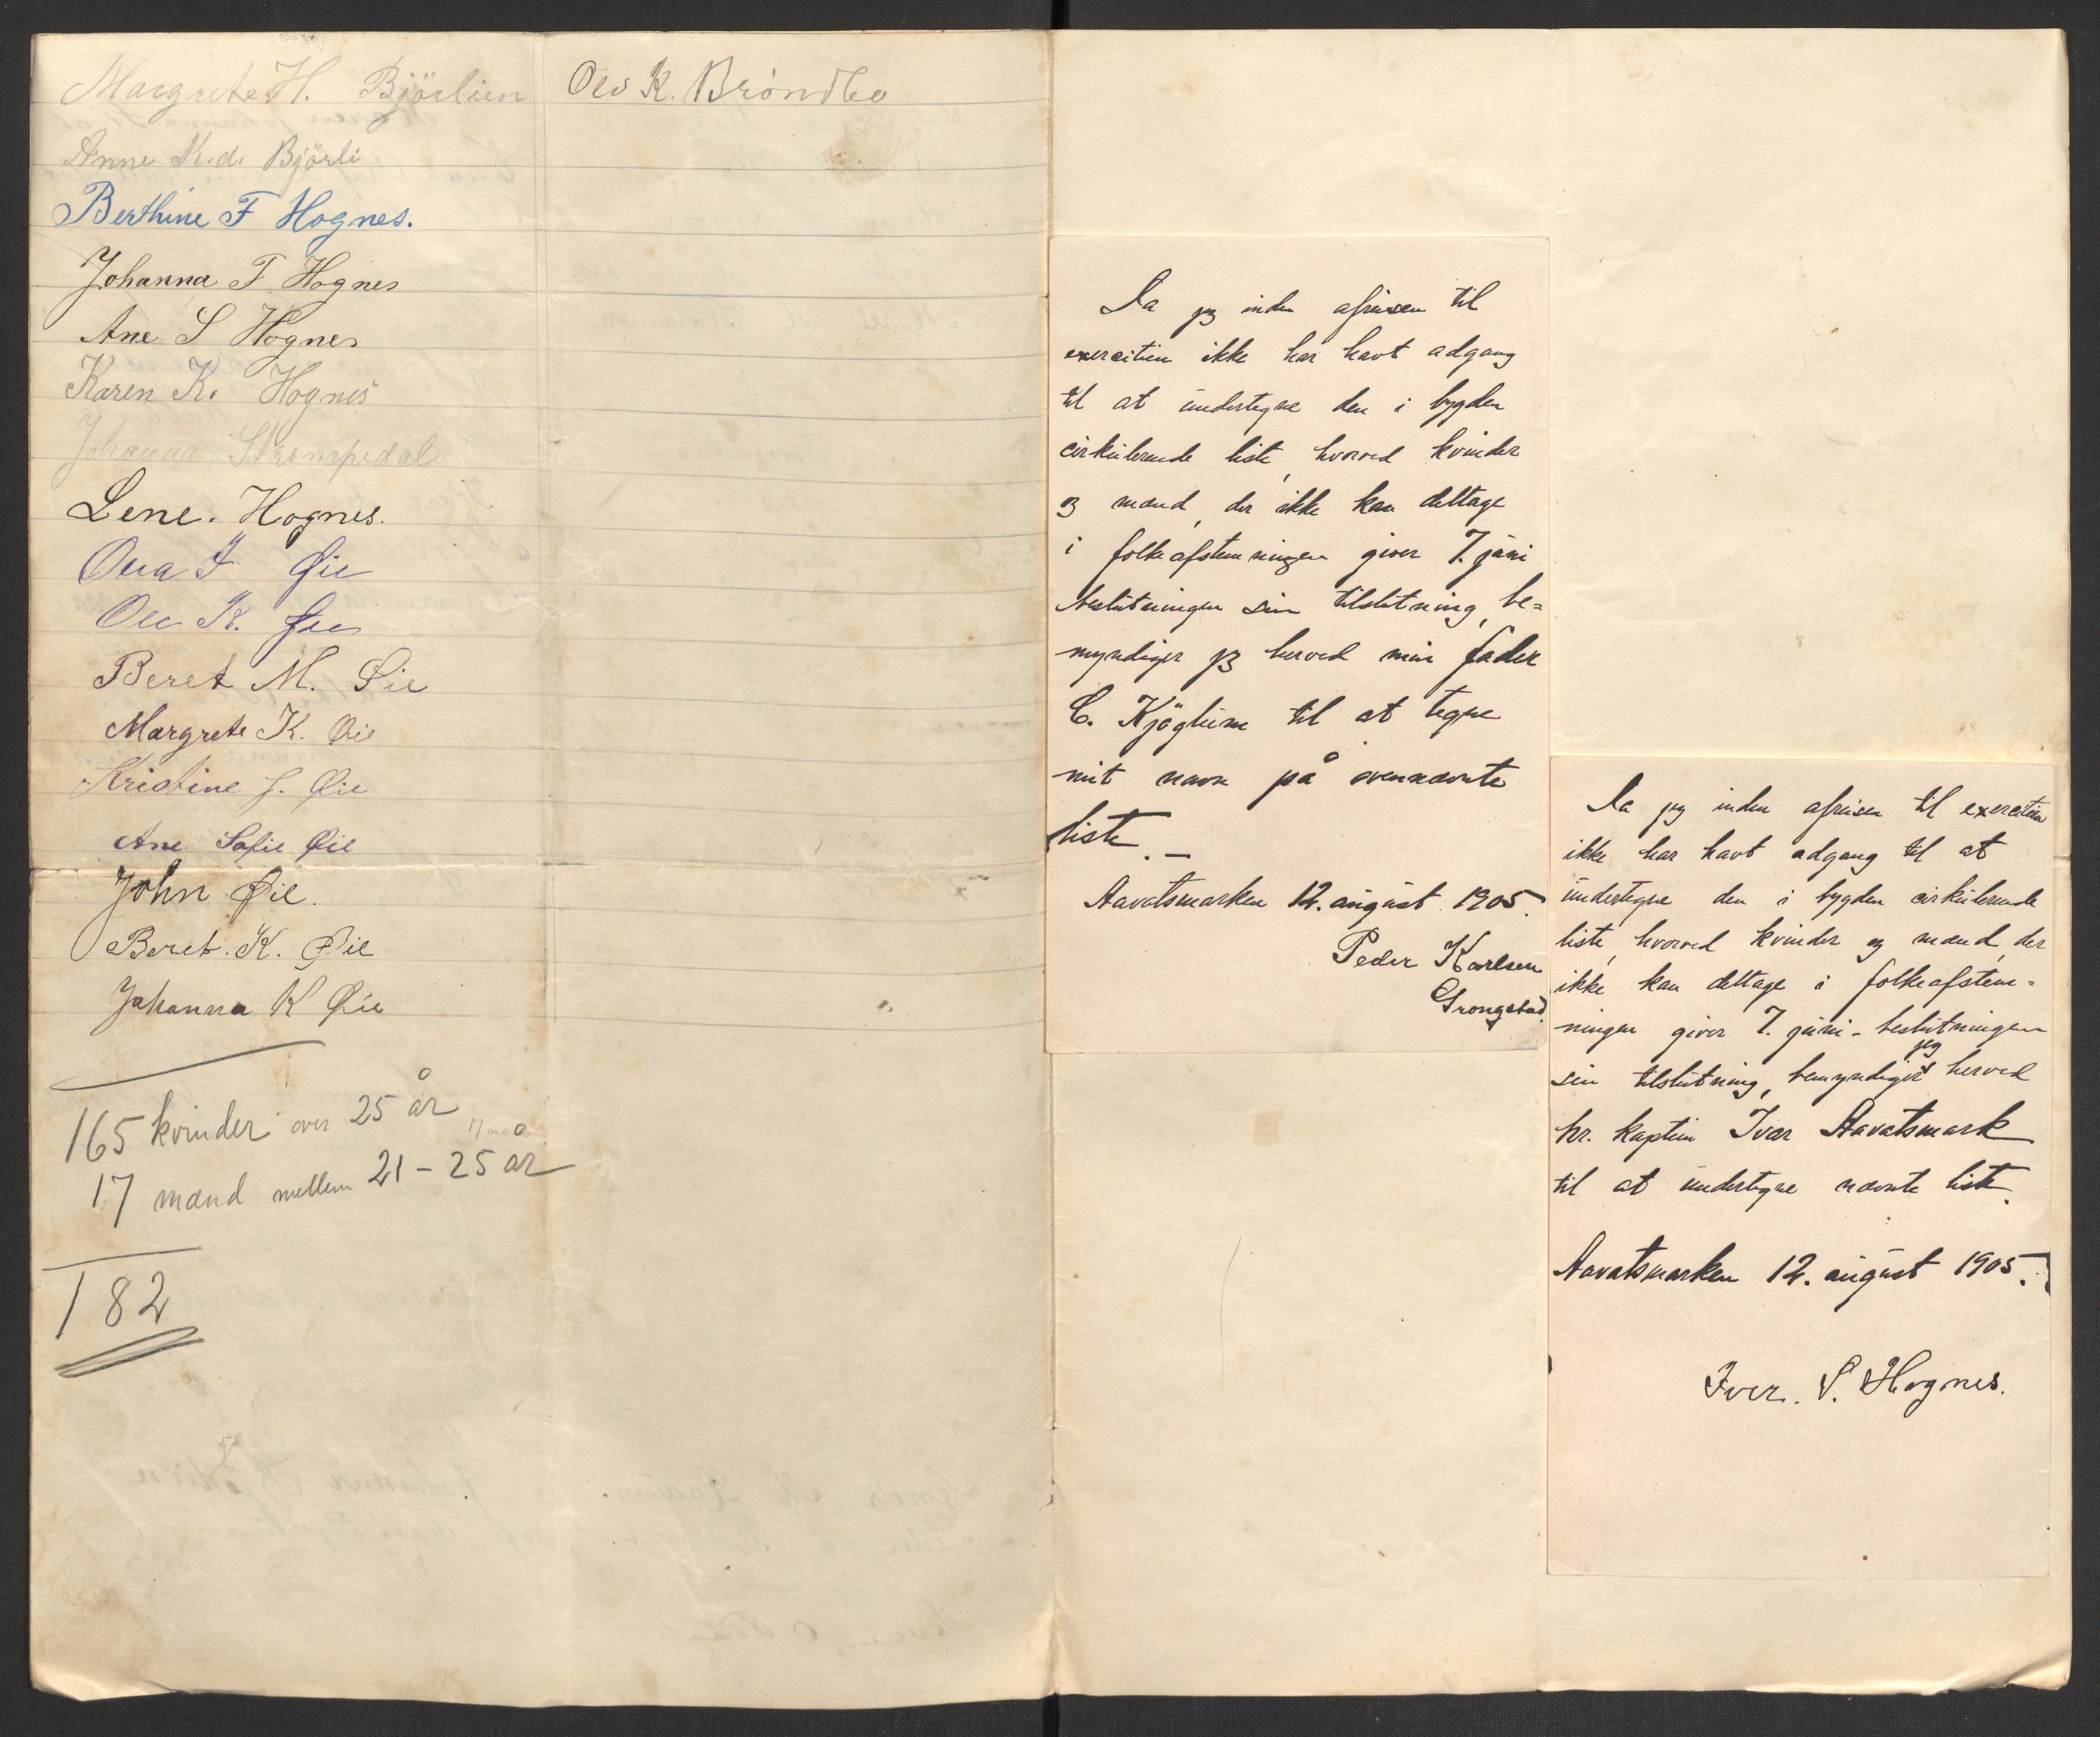 Margrete H. Bjørlien
Anne K.d. Bjørli
Berthine F Hognes.
Johanna F Hognes
Ane S Hognes
Karen K. Hognes
Johanna Strompdal
Lene. Hognes.
Øie
Ole K. Øie
Beret M. Øie
Margrete K. Øie
Kristine J. Øie
Ane Sofie Øie
John Øie.
Beret. K. Øie
Johanna K Øie
165 kvinder over 25 år
17 mænd mellem 21 – 25 år
182
K. Brøndbo
Da jeg inden afreisen til
exercitien ikke har havt adgang
til at undertegne den i bygden
cirkulerende liste, hvorved kvinder
og mænd, der ikke kan deltage
i folkeafstemningen giver 7. juni
beslutningen sin tilslutning, be=
myndiger jeg herved min fader
C. Kjøglum til at tegne
mit navn på ovennævnte
liste. –
Aavatsmarken 12. august 1905.
Peder Karlsen
Grongstad.
Da jeg inden afreisen til exercitien
ikke har havt adgang til at
undertegne den i bygden cirkulerende
liste, hvorved kvinder og mænd, der
ikke kan deltage i folkeafstem=
ningen giver 7. juni-beslutningen
sin tilslutning, bemyndiger jeg herved
hr. kaptein Ivar Aavatsmark
til at undertegne nævnte liste.
Aavatsmarken 12. august 1905.
Iver. S. Hognes.